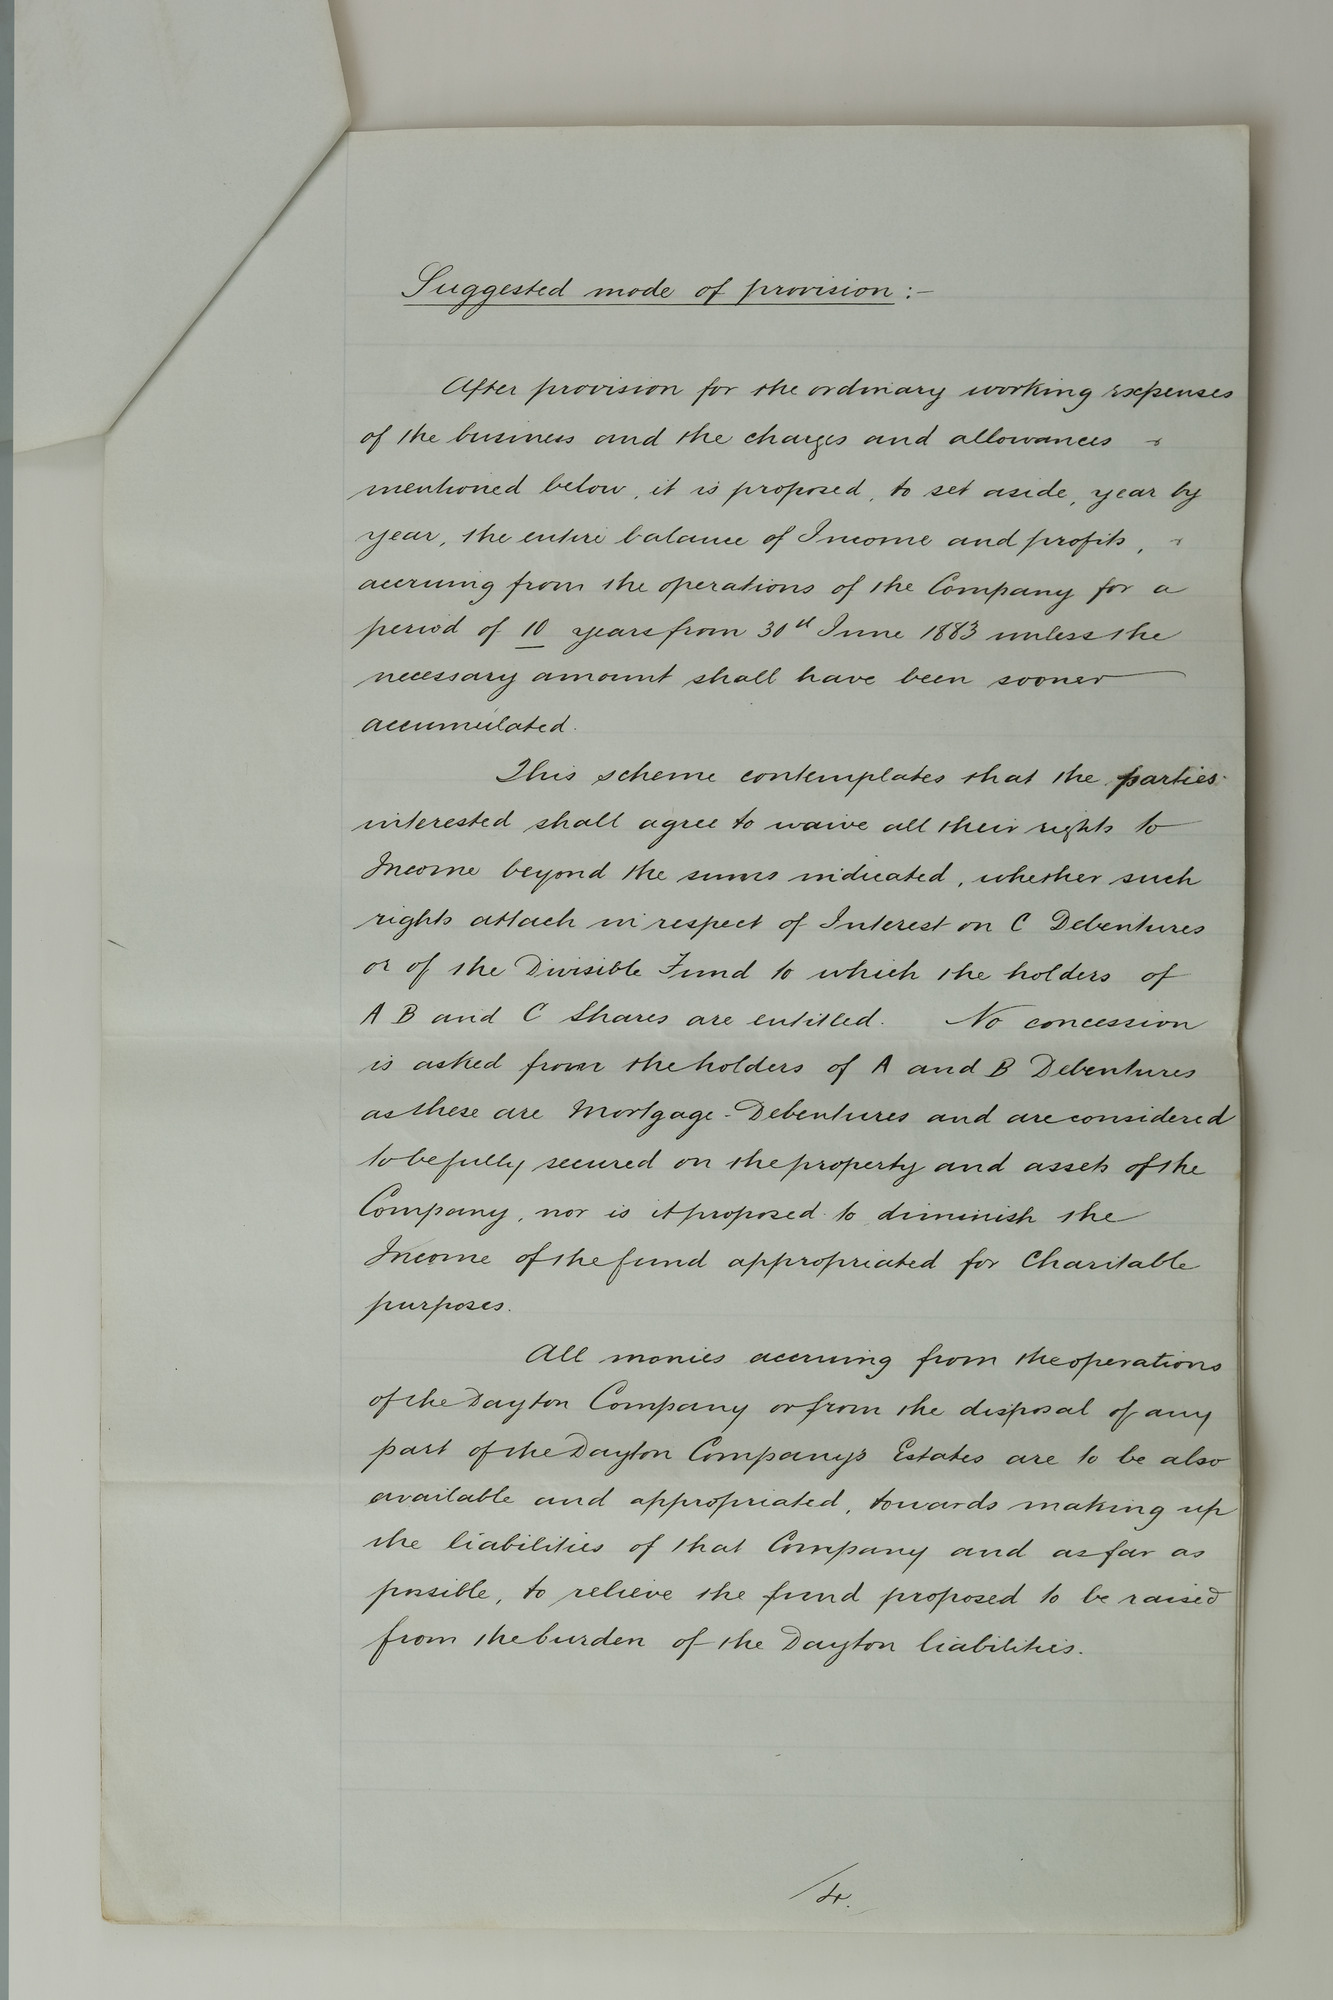 Suggested mode of provision :-
After provision for the ordinary working expenses
of the business and the charges and allowances
mentioned below, it is proposed, to set aside, year by
year, the entire balance of Income and profits,
accruing from the operations of the Company for a
period of 10 years from 30th June 1883 unless the
necessary amount shall have been sooner
accumulated.
This scheme contemplates that the parties
interested shall agree to waive all their rights to
Income beyond the sums indicated, whether such
rights attach in respect of Interest on C Debentures
or of the Divisible Fund to which the holders of
A B and C Shares are entitled. No concession
is asked from the holders of A and B Debentures
as these are Mortgage-Debentures and are considered
to be fully secured on the property and assets of the
Company, nor is it proposed to diminish the
Income of the fund appropriated for Charitable
purposes.
All monies accruing from the operations
of the Dayton Company or from the disposal of any
part of the Dayton Company's Estates are to be also
available and appropriated, towards making up
the liabilities of that Company and as far as
possible, to relieve the fund proposed to be raised
from the burden of the Dayton liabilities.
/4.